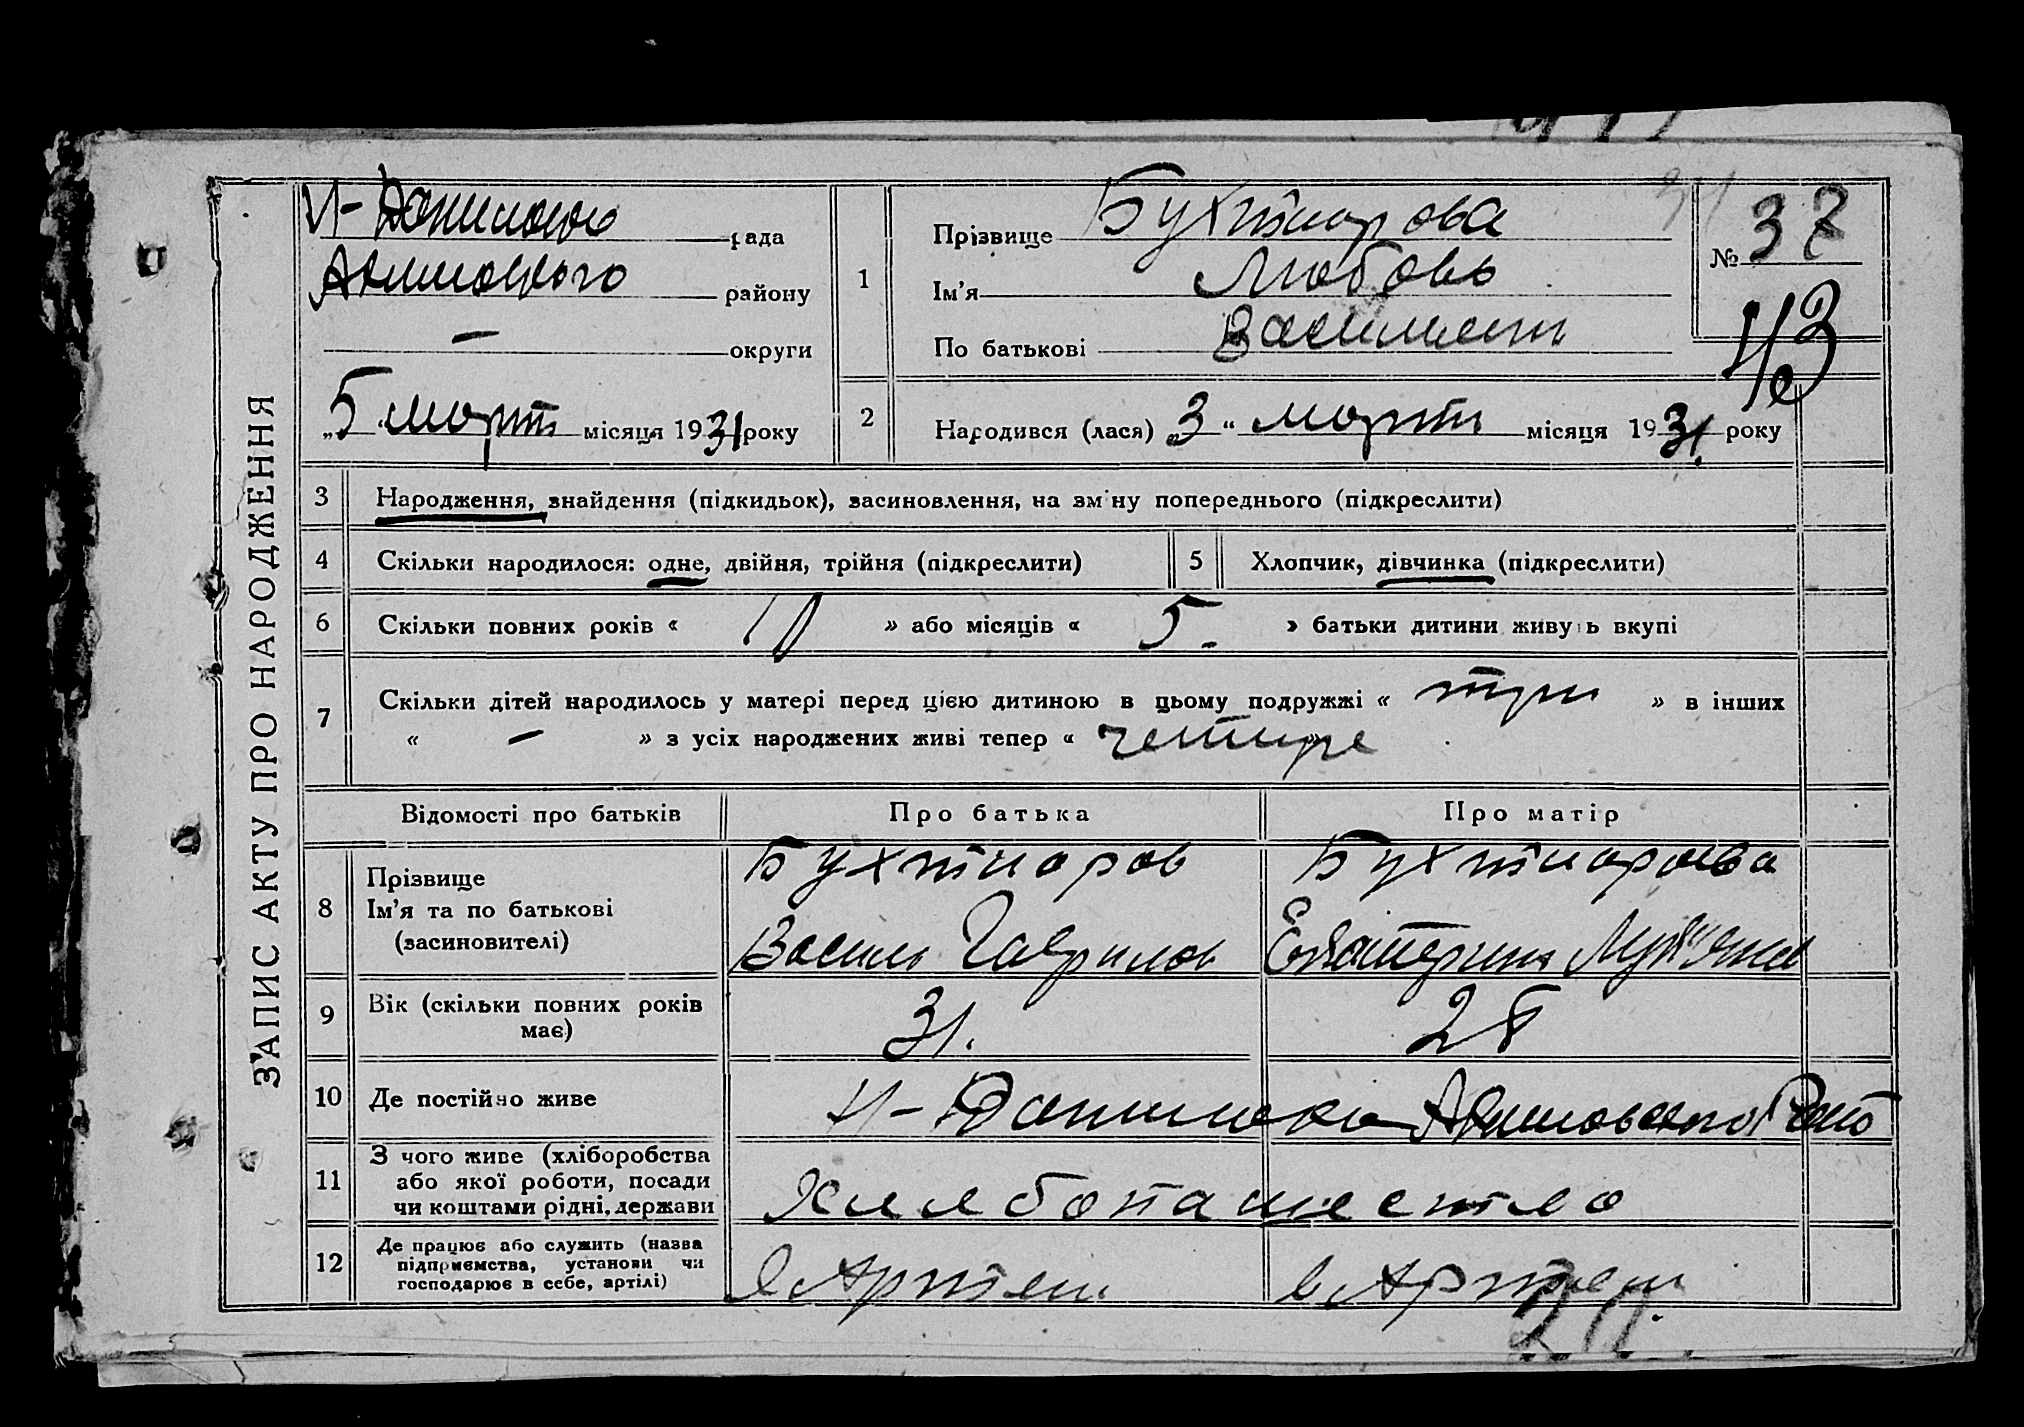 ЗАПИС АКТУ ПРО НАРОДЖЕННЯ
рада
району
— округи
„5“ март місяця 1931 року
1
Прізвище Бухтиарова
Ім’я Любовь
По батькові
№ 37
43
2
Народився (лася) „3“ марта місяця 1931. року
3 Народження, знайдення (підкидьок), засиновлення, на зміну попереднього (підкреслити)
4 Скільки народилося: одне, двійня, трійня (підкреслити)
5 Хлопчик, дівчинка (підкреслити)
6 Скільки повних років « » або місяців « 5. » батьки дитини живуть вкупі
7 Скільки дітей народилось у матері перед цією дитиною в цьому подружжі « три » в інших
« — » з усіх народжених живі тепер « четире
Відомості про батьків Про батька Про матір
8 Прізвище
Ім’я та по батькові
(засиновителі)
Бухтиаров
Василь Гаврилов
Бухтиарова
Екатерина
9 Вік (скільки повних років має)
31.
10 Де постійно живе
11 З чого живе (хліборобства
або якої роботи, посади
чи коштами рідні, держави
12 Де працює або служить (назва
підприємства, установи чи
господарює в себе, артілі)
в Артели
в Артели